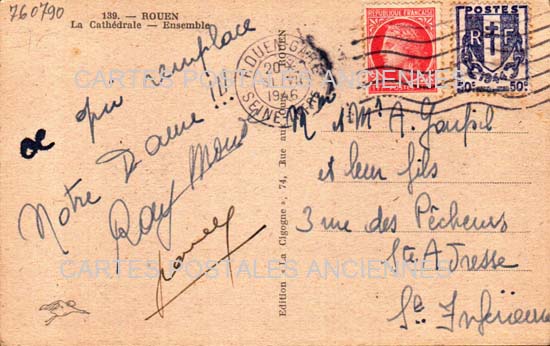 760790
139. — ROUEN
La Cathédrale — Ensemble
ce qui remplace
Notre Dame !!!
Raymond
CARTES POSTALES ANCIENNES
CARTES POSTALES ANCIENNES
Edition « La Cigogne », 74, Rue aux Ours, ROUEN
ROUEN GARE
20
1946
SEINE
REPUBLIQUE FRANÇAISE
POSTES
RF
50c 50c
M. et Mme A. Goupil
et leur fils
3 rue des Pêcheurs
Ste Adresse
Se. Inférieure